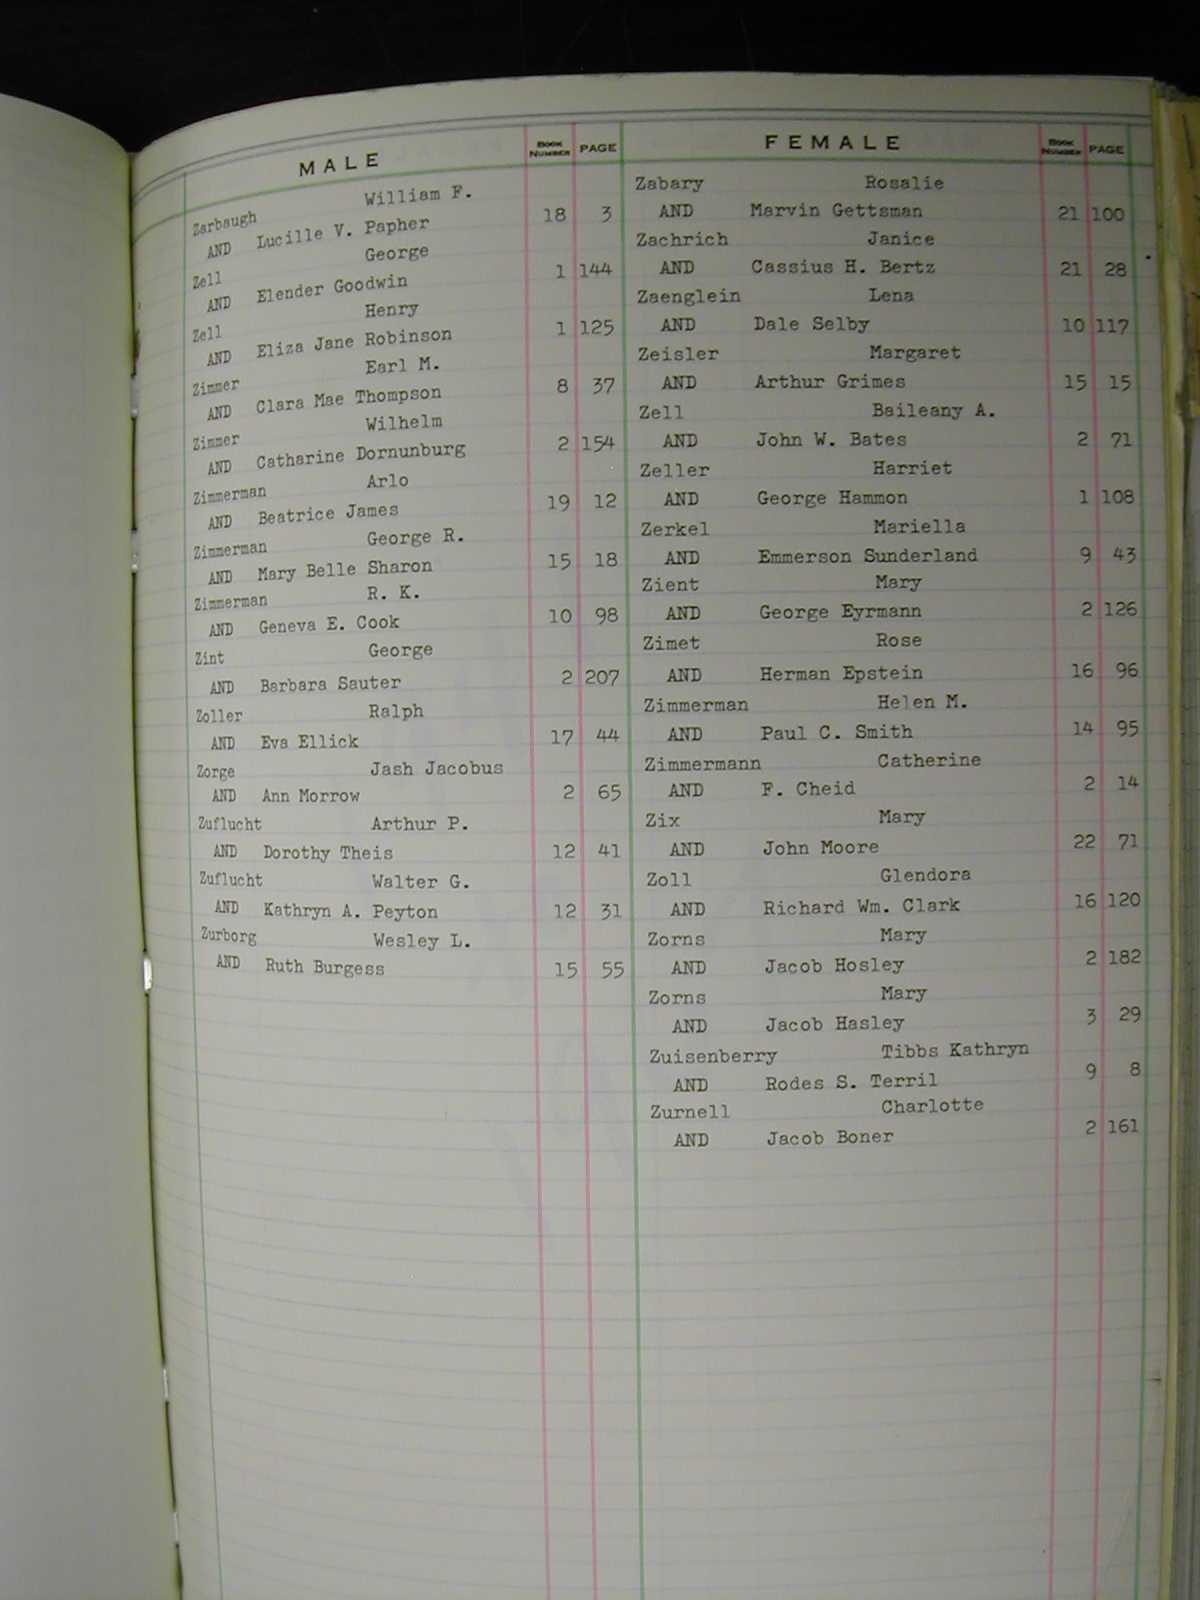 MALE BOOK NUMBER PAGE
Zarbaugh William F.
AND Lucille V. Papher 18 3
Zell George
AND Elender Goodwin 1 144
Zell Henry
AND Eliza Jane Robinson 1 125
Zimmer Earl M.
AND Clara Mae Thompson 8 37
Zimmer Wilhelm
AND Catharine Dornunburg 2 154
Zimmerman Arlo
AND Beatrice James 19 12
Zimmerman George R.
AND Mary Belle Sharon 15 18
Zimmerman R. K.
AND Geneva E. Cook 10 98
Zint George
AND Barbara Sauter 2 207
Zoller Ralph
AND Eva Ellick 17 44
Zorge Jash Jacobus
AND Ann Morrow 2 65
Zuflucht Arthur P.
AND Dorothy Theis 12 41
Zuflucht Walter G.
AND Kathryn A. Peyton 12 31
Zurborg Wesley L.
AND Ruth Burgess 15 55
FEMALE BOOK NUMBER PAGE
Zabary Rosalie
AND Marvin Gettsman 21 100
Zachrich Janice
AND Cassius H. Bertz 21 28
Zaenglein Lena
AND Dale Selby 10 117
Zeisler Margaret
AND Arthur Grimes 15 15
Zell Baileany A.
AND John W. Bates 2 71
Zeller Harriet
AND George Hammon 1 108
Zerkel Mariella
AND Emmerson Sunderland 9 43
Zient Mary
AND George Eyrmann 2 126
Zimet Rose
AND Herman Epstein 16 96
Zimmerman Helen M.
AND Paul C. Smith 14 95
Zimmermann Catherine
AND F. Cheid 2 14
Zix Mary
AND John Moore 22 71
Zoll Glendora
AND Richard Wm. Clark 16 120
Zorns Mary
AND Jacob Hosley 2 182
Zorns Mary
AND Jacob Hasley 3 29
Zuisenberry Tibbs Kathryn
AND Rodes S. Terril 9 8
Zurnell Charlotte
AND Jacob Boner 2 161